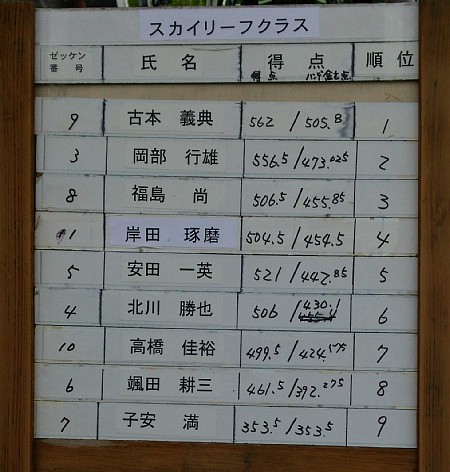 スカイリーフクラス
ゼッケン番号 氏名 得点 順位
得点 ハンデ含む点
9 古本 義典 562 / 505.8 1
3 岡部 行雄 556.5 / 473.025 2
8 福島 尚 506.5 / 455.85 3
1 岸田 琢磨 504.5 / 454.5 4
5 安田 一英 521 / 442.85 5
4 北川 勝也 506 / 430.1 6
10 高橋 佳裕 499.5 / 424.575 7
6 颯田 耕三 461.5 / 392.275 8
7 子安 満 353.5 / 353.5 9